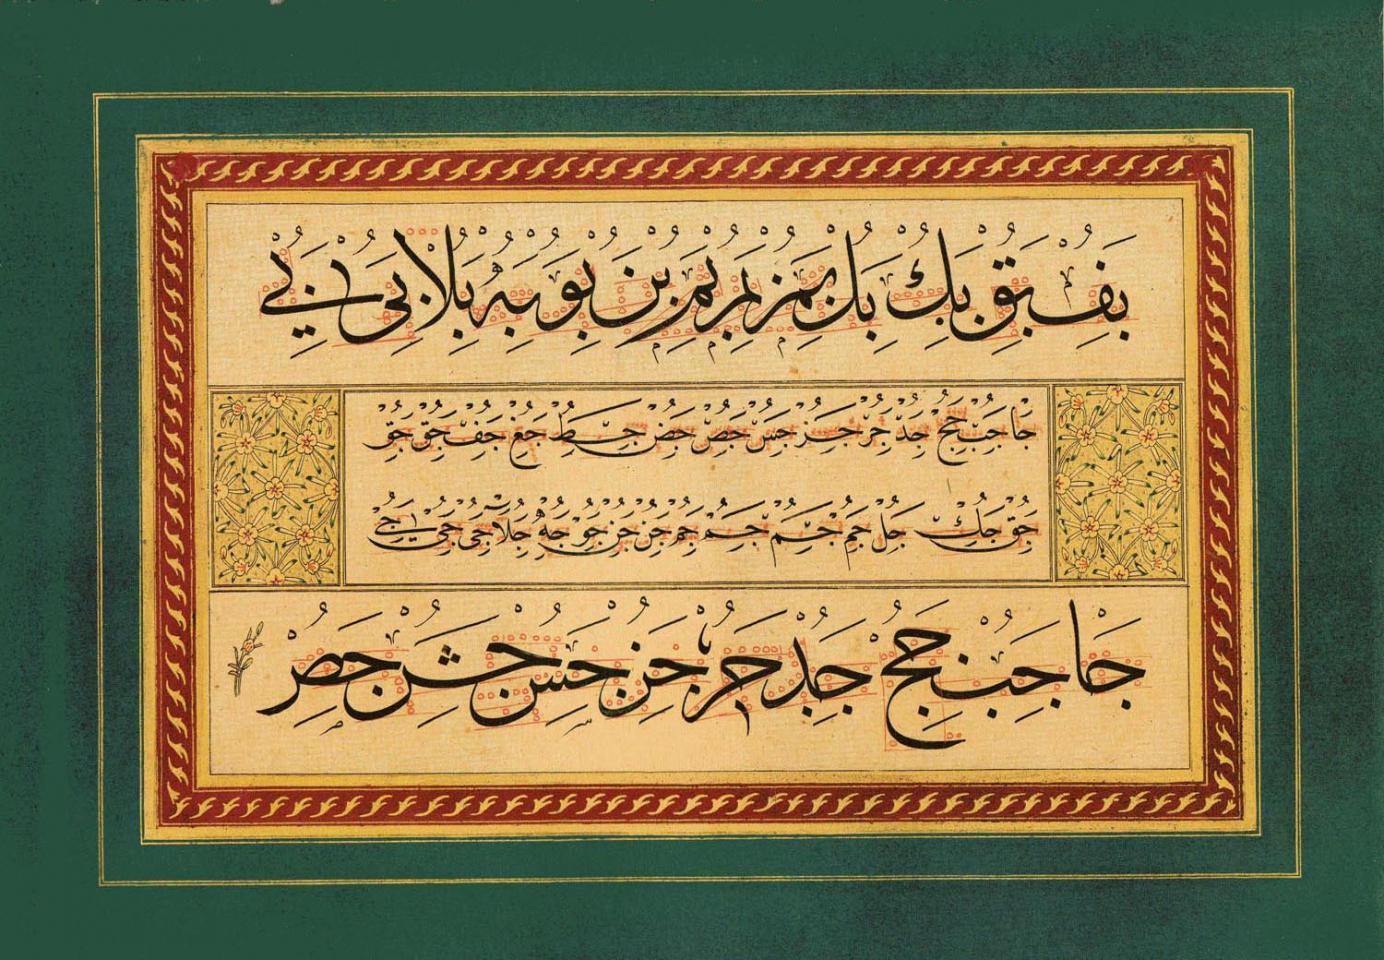 بف بق بك بل بم بم بم بن بو به بلا بى بى
جا جب جج جد جر جس جص جط جع جف جق
جق جك جل جم جم جم جم جن جن جو جه جلا جى جى
جا جب جج جد جر جز جس جش جص